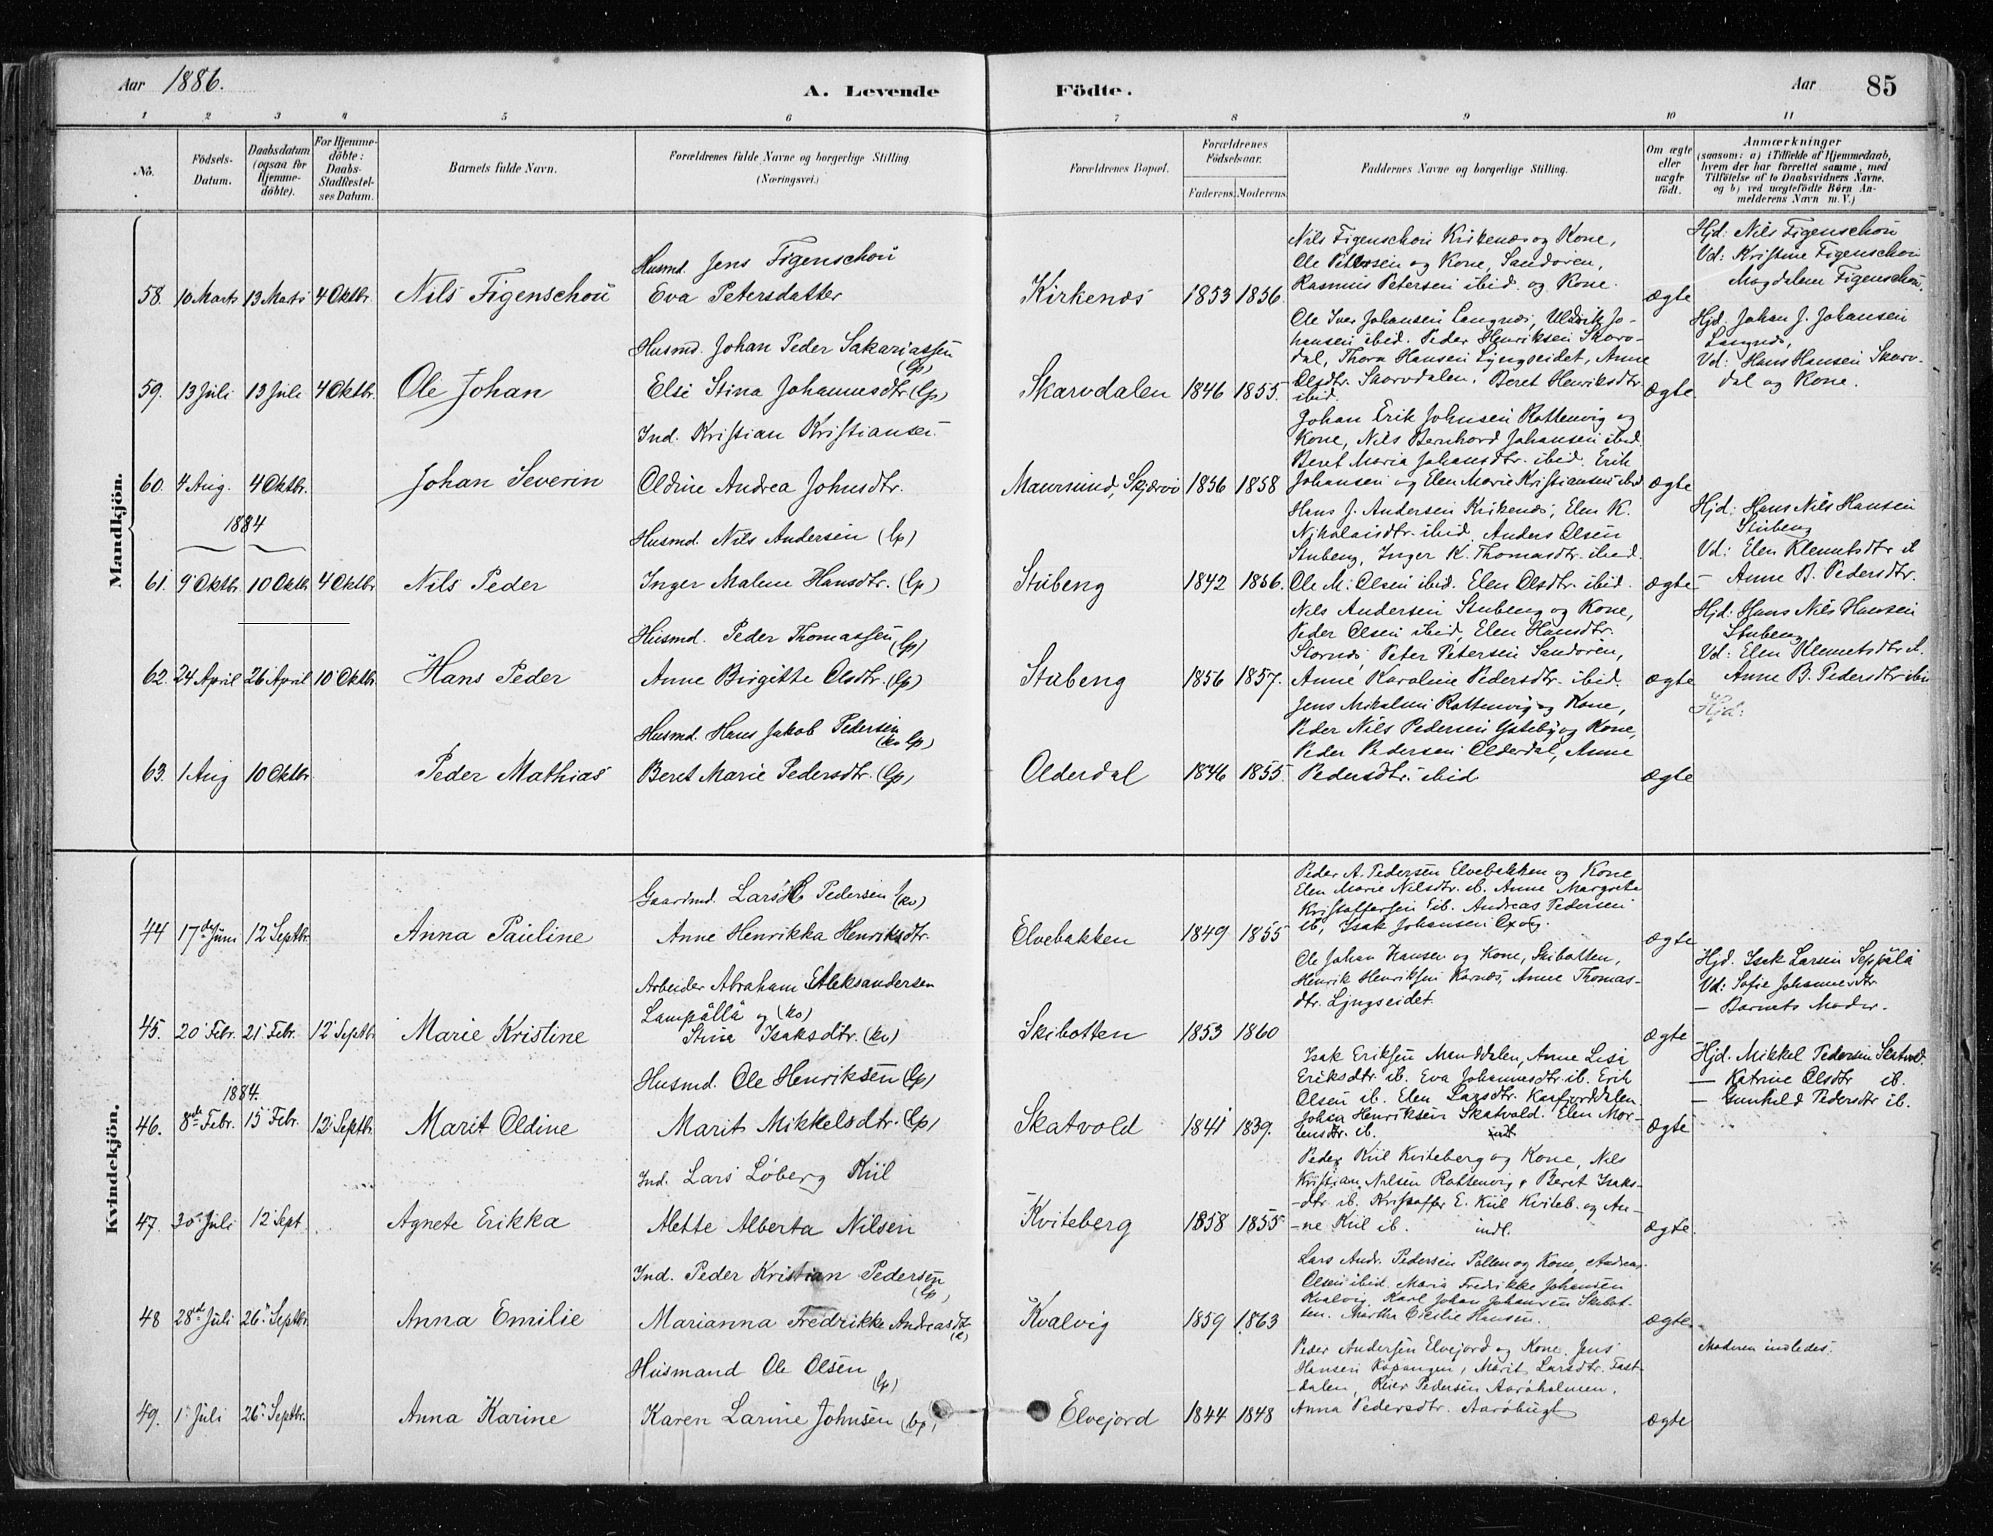 Aar 1886.
A. Levende Födte.
Aar 85
1 2 3 4 5 6 7 8 9 10 11
No.
Födsels-Datum.
Daabsdatum (ogsaa for Hjemme-döbte).
For Hjemme-döbte: Daabs-Stadfæstel-ses Datum.
Barnets fulde Navn.
Forældrenes fulde Navne og borgerlige Stilling (Næringsvei.)
Forældrenes Bopæl.
Forældrenes Födselsaar.
Faderens. Moderens.
Faddernes Navne og borgerlige Stilling.
Om ægte eller uægte födt.
Anmærkninger
(saasom: a) i Tilfælde af Hjemmedaab, hvem der har forrettet samme, med Tilföielse af to Daabsvidners Navne. og b) ved uægtefödte Börn An-melderens Navn m. V.)
Mandkjön.
58. 10 Marts 13 Marts 4 Oktbr. Nils Figenschou
Husmd. Jens Figenschou
Eva Petersdatter
Kirkenæs 1853 1856
Nils Figenschou Kirkenæs og Kone,
Ole Petersen og Kone, Sandøren,
Rasmus Petersen ibid. og Kone.
ægte
Hjd: Nils Figenschou
Vd: Kristine Figenschou
Magdalena Figenschou.
59. 13 Juli 13 Juli 4 Oktbr. Ole Johan
Husmd. Johan Peder Sakariassen (lp)
Elsi Stina Johannesdtr. (lp)
Skarvdalen 1846 1855.
Ole Iver Johansen Langnæs, Uldrik Jo-
hansen ibid. Peder Henriksen Skarv-
dal, Thora Hansen Lyngseidet, Anne
Olsdtr. Skarvdalen, Beret Henriksdtr.
ibid.
ægte
Hjd: Johan J. Johansen
Langnæs,
Vd: Hans Hansen Skarv-
dal og Kone.
60. 4 Aug. 4 Oktbr. Johan Severin
Ind. Kristian Kristiansen
Oldine Andrea Johnsdtr.
Maursund, Skjærvø 1856 1858
Johan Erik Johnsen Rottenvig og
Kone, Nils Bernhard Johansen ibid.
Beret Maria Johansdtr. ibid. Erik
Johansen og Elen Marie Kristiansen ibid
ægte
1884
61. 9 Oktbr. 10 Oktbr 4 Oktbr Nils Peder
Husmd. Nils Andersen (lp)
Inger Malene Hansdtr. (lp)
Stubeng 1842 1856.
Hans J. Andersen Kirkenæs, Elen K.
Nikolaisdtr. ibid. Anders Olsen
Stubeng, Inger K. Thomasdtr. ibid.
Ole M. Olsen ibid. Elen Olsdtr. ibid.
ægte
Hjd: Hans Nils Hansen
Stubeng
Vd: Elen Klemetsdtr i.
— Anne B. Pedersdtr.
62. 24 April 26 April 10 Oktbr. Hans Peder
Husmd. Peder Thomassen (lp)
Anne Birgitte Olsdtr. (lp)
Stubeng 1856 1857.
Nils Andersen Stubeng og Kone,
Peder Olsen ibid, Elen Hansdtr.
Stornæs, Peter Petersen Sandøren,
Anne Karoline Pedersdtr. ibid.
ægte
Hjd: Hans Nils Hansen
Stubeng
Vd: Elen Klemetsdtr i.
Anne B. Pedersdtr ibi
63. 1 Aug 10 Oktbr. Peder Mathias
Husmd. Hans Jakob Pedersen (kv lp)
Beret Marie Pedersdtr. (lp)
Olderdal 1846 1855
Jens Mikalsen Rottenvig og Kone,
Peder Nils Pedersen Ysteby og Kone,
Peder Pedersen Olderdal, Anne
Pedersdtr. ibid
ægte
Hjd:
Kvindekjön.
44 17de Juni 12 Septbr. Anna Pauline
Gaardmd. Lars H Pedersen (kv)
Anne Henrikka Henriksdtr.
Elvebakken 1849 1855
Peder A. Pedersen Elvebakken og Kone
Elen Marie Nilsdtr. ib. Anne Margrete
Kristoffersen ib. Andreas Pedersen
ib, Isak Johansen
ægte
45. 20 Febr. 21 Febr. 12 Septbr Marie Kristine
Arbeider Abraham Aleksandersen
Lampällä og (kv)
Stina Isaksdtr. (kv)
Skibotten 1853 1860
Ole Johan Hansen og Kone, Skibotten,
Henrik Henriksen Karnæs, Anne Thomas-
dtr. Lyngseidet.
ægte
Hjd. Isak Larsen Seppälä
Vd: Sofie Johannesdtr
— Barnets Moder.
1884.
46. 8de Febr. 15 Febr. 12 Septbr. Marit Oldine
Husmd. Ole Henriksen (lp)
Marit Mikkelsdtr. (lp)
Skatvold 1841 1839.
Isak Eriksen Manddalen, Anne Lisa
Eriksdtr. ib. Eva Johannesdtr. ib. Erik
Olsen ib. Elen Larsdtr. Kaafjorddalen
Johan Henriksen Skatvold. Elen Mor-
tensdtr. ib.
ægte
Hjd. Mikkel Pedersen Skatvold.
— Katrine Olsdtr ib.
— Gunhild Pedersdtr ib.
47. 30 Juli 12 Sept. Agnete Erikka
Ind. Lars Løberg Kiil
Mette Alberta Nilsen
Kviteberg 1858 1855
Peder Kiil Kviteberg og Kone, Nils
Kristian Nilsen Rottenvig, Beret Isaks-
-dtr ib. Kristoffer E. Kiil Kviteb. og An-
-ne Kiil ib. indl.
ægte.
48 28de Juli 26 Septbr. Anna Emilie
Ind. Peder Kristian Pedersen (lp)
Marianna Fredrikke Andreasdtr
Kvalvig 1859 1863
Lars Andr. Pedersen Pollen og Kone, Andreas
Olsen ibid. Maria Fredrikke Johansen
Kvalvig Karl Johan Johansen Skibot-
ten. Martha Cecilie Hansen.
ægte.
49. 1 Juli 26 Septbr. Anna Karine
Husmand Ole Olsen (lp)
Karen Larine Johnsen (lp)
Elvejord 1844 1848
Peder Andersen Elvejord og Kone. Jens
Hansen Kopangen, Marit Larsdtr. Fast-
-dalen, Peder Pedersen Aarøholmen,
Anna Pedersdtr. Aarøbugt
ægte
Moderen indledes.